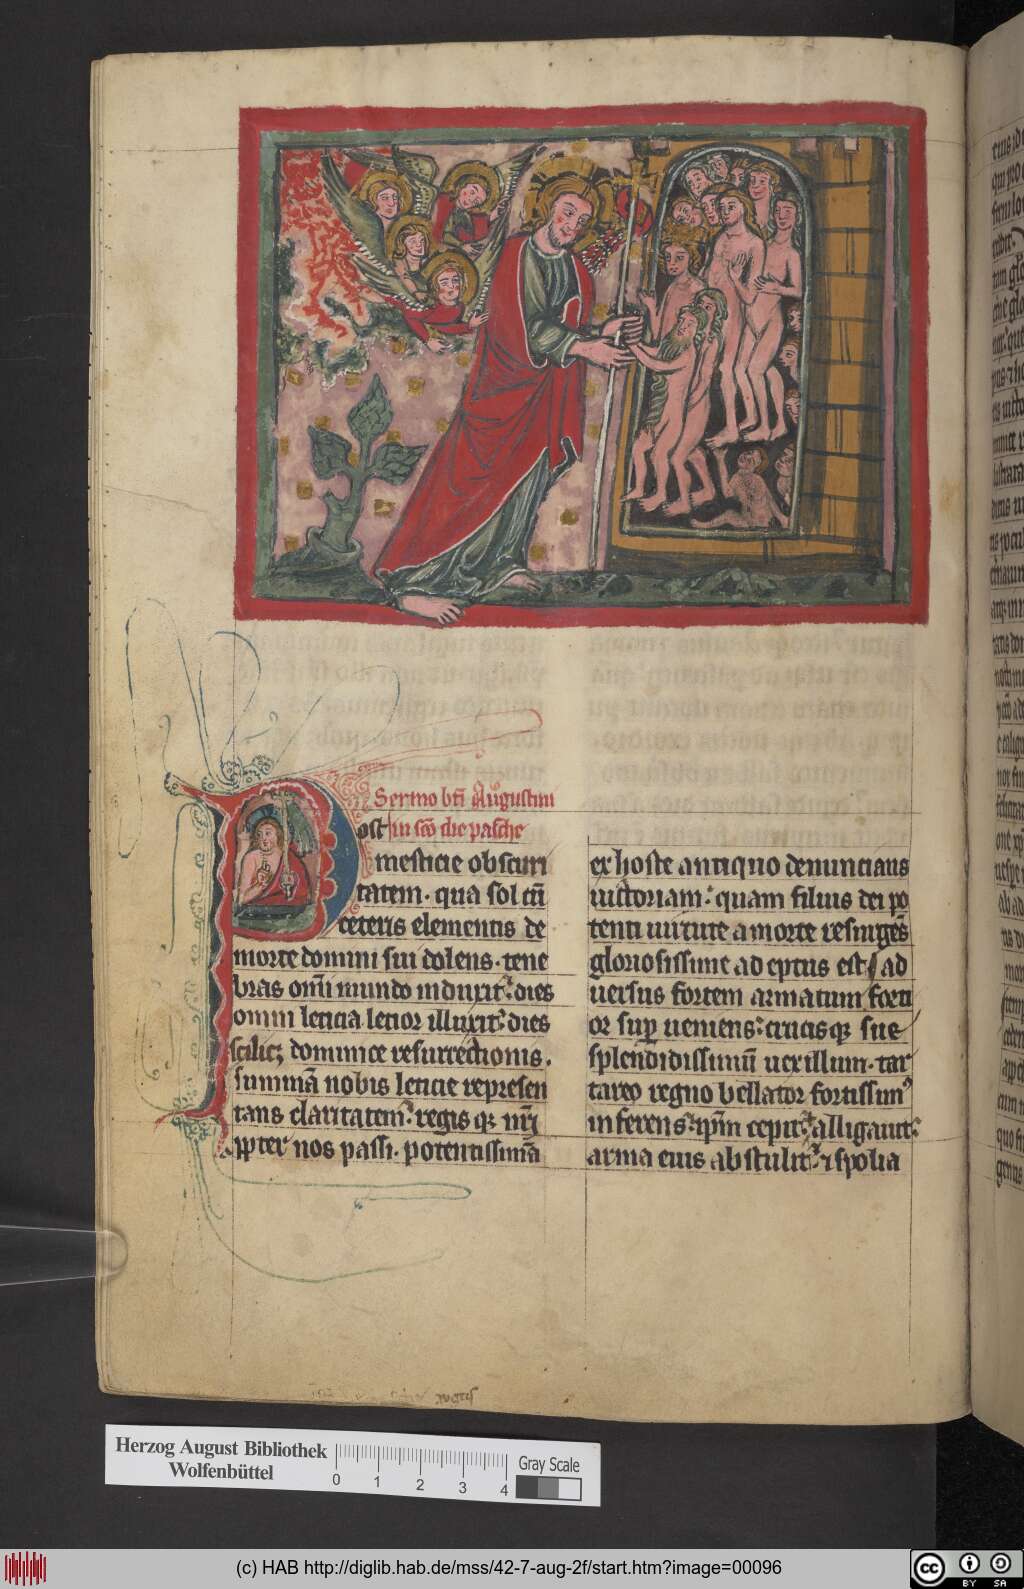 Sermo bti Augustini
in sco die pasche
Post
mesticie obscuri
tatem. qua sol cū
ceteris elementis de
morte domini sui dolens. tene
bras omi mundo induxit: dies
omni leticia letior illuxit: dies
scilicꝫ dominice resurrectionis.
summā nobis leticie represen
tans claritatem: regis qꝫ nr̄i
ꝓpter nos passi. potentissimā
ex hoste antiquo denuncians
uictoriam: quam filius dei po
tenti uirtute a morte resurgēs
gloriosissime adeptus est. ad
uersus fortem armatum forti
or suꝑ ueniens: crucis qꝫ sue
splendidissimū uexillum. tar
tareo regno bellator fortissimꝰ
inferens: ipm̄ cepit: alligauit:
arma eius abstulit: ⁊ spolia
Herzog August Bibliothek
Wolfenbüttel
0 1 2 3 4
Gray Scale
(c) HAB http://diglib.hab.de/mss/42-7-aug-2f/start.htm?image=00096
cc BY SA